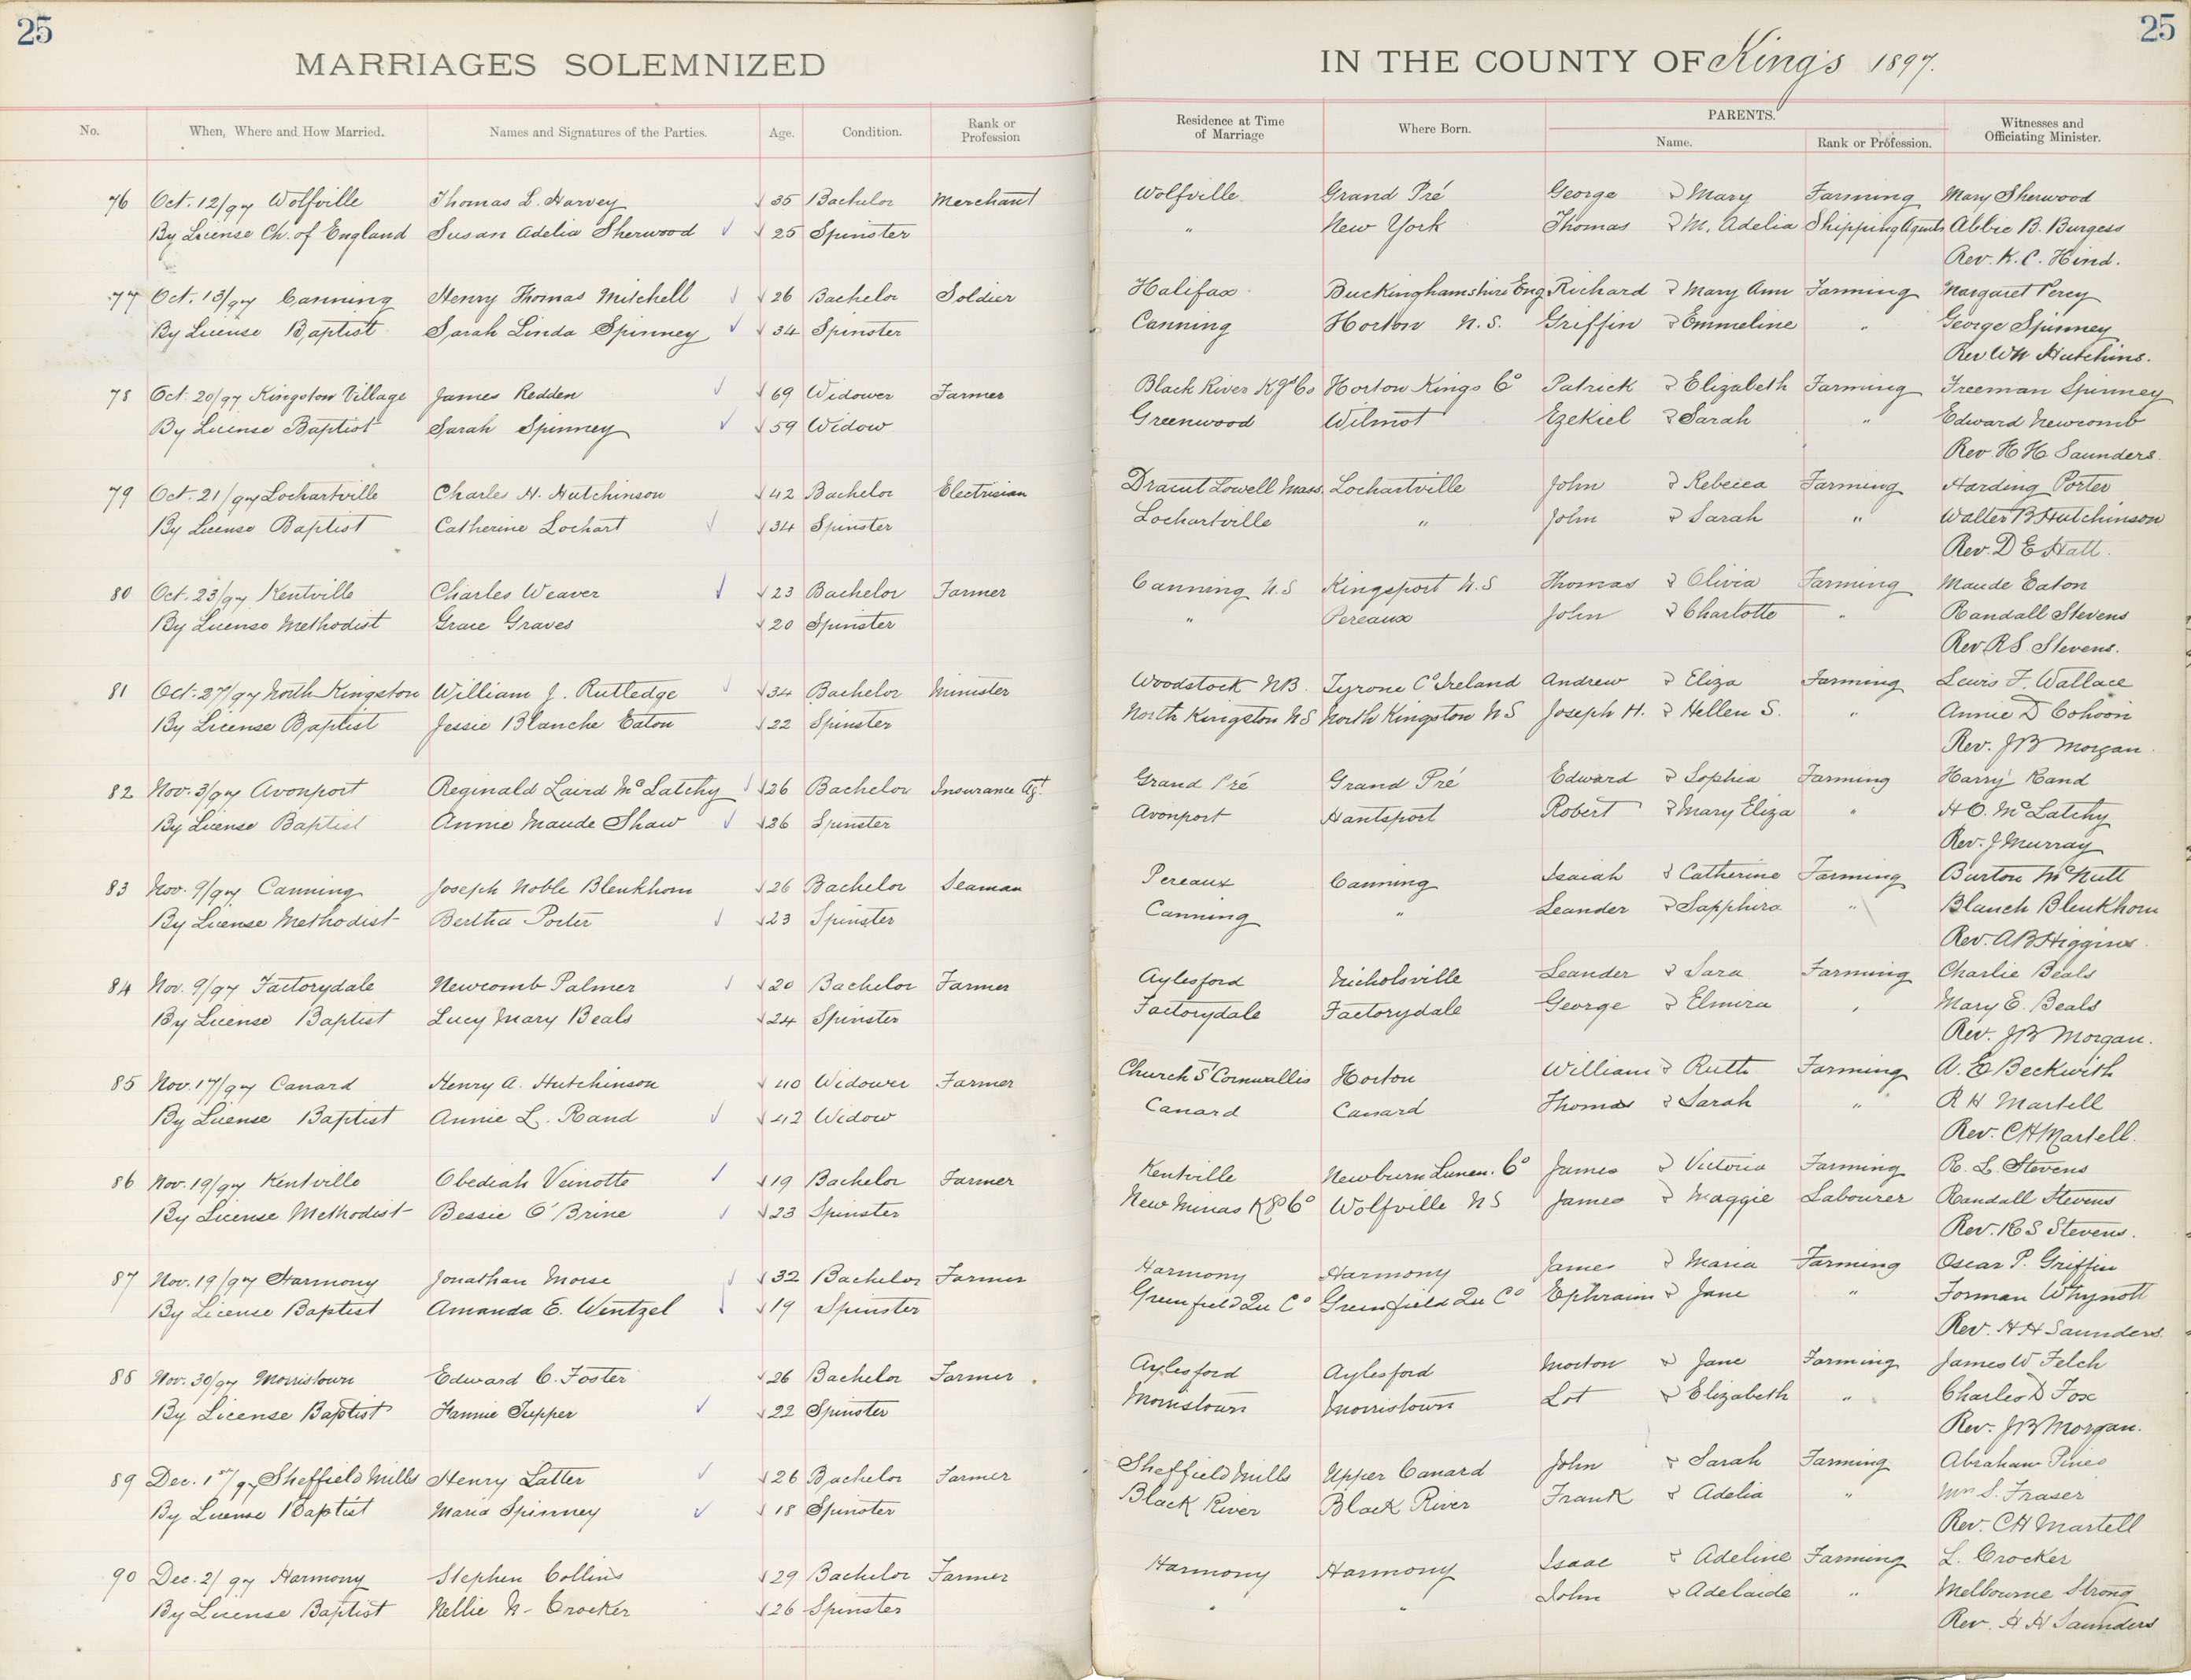 25
25
MARRIAGES SOLEMNIZED IN THE COUNTY OF King's 1897.
No. When, Where and How Married. Names and Signatures of the Parties. Age. Condition. Rank or Profession Residence at Time of Marriage Where Born. PARENTS. Name. Rank or Profession. Witnesses and Officiating Minister.
76 Oct. 12/97 Wolfville Thomas L. Harvey 35 Bachelor Merchant Wolfville Grand Pré George & Mary Farming Mary Sherwood
By License Ch. of England Susan Adelia Sherwood 25 Spinster " New York Thomas & M. Adelia Shipping Agents Abbie B. Burgess
Rev. K. C. Hind.
77 Oct. 13/97 Canning Henry Thomas Mitchell 26 Bachelor Soldier Halifax Buckinghamshire Eng Richard & Mary Ann Farming Margaret Percy
By License Baptist Sarah Linda Spinney 34 Spinster Canning Horton N.S. Griffin & Emmeline " George Spinney
Rev WN Hutchins.
78 Oct. 20/97 Kingston Village James Redden 69 Widower Farmer Black River Kgs Co Horton Kings Co Patrick & Elizabeth Farming Freeman Spinney
By License Baptist Sarah Spinney 59 Widow Greenwood Wilmot Ezekiel & Sarah " Edward Newcomb
Rev. H H Saunders.
79 Oct. 21/97 Lochartville Charles H. Hutchinson 42 Bachelor Electrisian Dracut Lowell Mass. Lochartville John & Rebecca Farming Harding Porter
By License Baptist Catherine Lochart 34 Spinster Lochartville " John & Sarah " Walter B Hutchinson
Rev. D E Hatt.
80 Oct. 23/97 Kentville Charles Weaver 23 Bachelor Farmer Canning N.S Kingsport N.S Thomas & Olivia Farming Maude Eaton
By License Methodist Grace Graves 20 Spinster " Pereaux John & Charlotte " Randall Stevens
Rev. R S. Stevens.
81 Oct. 27/97 North Kingston William J. Rutledge 34 Bachelor Minister Woodstock NB. Tyrone Co Ireland Andrew & Eliza Farming Lewis F. Wallace
By License Baptist Jessie Blanche Eaton 22 Spinster North Kingston NS North Kingston NS Joseph H. & Hellen S. " Annie D Cohoon
Rev. J B Morgan.
82 Nov. 3/97 Avonport Reginald Laird McLatchy 26 Bachelor Insurance Agt. Grand Pré Grand Pré Edward & Sophia Farming Harry Rand
By License Baptist Annie Maude Shaw 26 Spinster Avonport Hantsport Robert & Mary Eliza " H O. McLatchy
Rev. J Murray
83 Nov. 9/97 Canning Joseph Noble Blenkhorn 26 Bachelor Seaman Pereaux Canning Isaiah & Catherine Farming Burton McNutt
By License Methodist Bertha Porter 23 Spinster Canning " Leander & Sapphira " Blanch Blenkhorn
Rev. A B Higgins.
84 Nov. 9/97 Factorydale Newcomb Palmer 20 Bachelor Farmer Aylesford Nicholsville Leander & Sara Farming Charlie Beals
By License Baptist Lucy Mary Beals 24 Spinster Factorydale Factorydale George & Elmira " Mary E. Beals
Rev. J B Morgan.
85 Nov. 17/97 Canard Henry A. Hutchinson 40 Widower Farmer Church St Cornwallis Horton William & Ruth Farming A. E Beckwith
By License Baptist Annie L. Rand 42 Widow Canard Canard Thomas & Sarah " R H Martell
Rev. C H Martell.
86 Nov. 19/97 Kentville Obediah Veinotte 19 Bachelor Farmer Kentville Newburn Lunen. Co James & Victoria Farming R. L. Stevens
By License Methodist Bessie O'Brine 23 Spinster New Minas Kgs Co Wolfville NS James & Maggie Labourer Randall Stevens
Rev. R S Stevens.
87 Nov. 19/97 Harmony Jonathan Morse 32 Bachelor Farmer Harmony Harmony James & Maria Farming Oscar P. Griffin
By License Baptist Amanda E. Wentzel 19 Spinster Greenfield Qu Co Greenfield Qu Co Ephraim & Jane " Forman Whynott
Rev. H H Saunders.
88 Nov. 30/97 Morristown Edward C. Foster 26 Bachelor Farmer Aylesford Aylesford Morton & Jane Farming James W Felch
By License Baptist Fannie Tupper 22 Spinster Morristown Morristown Lot & Elizabeth " Charles D Fox
Rev. J B Morgan.
89 Dec. 1st/97 Sheffield Mills Henry Latter 26 Bachelor Farmer Sheffield Mills Upper Canard John & Sarah Farming Abraham Pineo
By License Baptist Maria Spinney 18 Spinster Black River Black River Frank & Adelia " Mrs S. Fraser
Rev. C H Martell
90 Dec. 2/97 Harmony Stephen Collins 29 Bachelor Farmer Harmony Harmony Isaac & Adeline Farming L. Crocker
By License Baptist Nellie N. Crocker 26 Spinster " " John & Adelaide " Melbourne Strong
Rev. H H Saunders